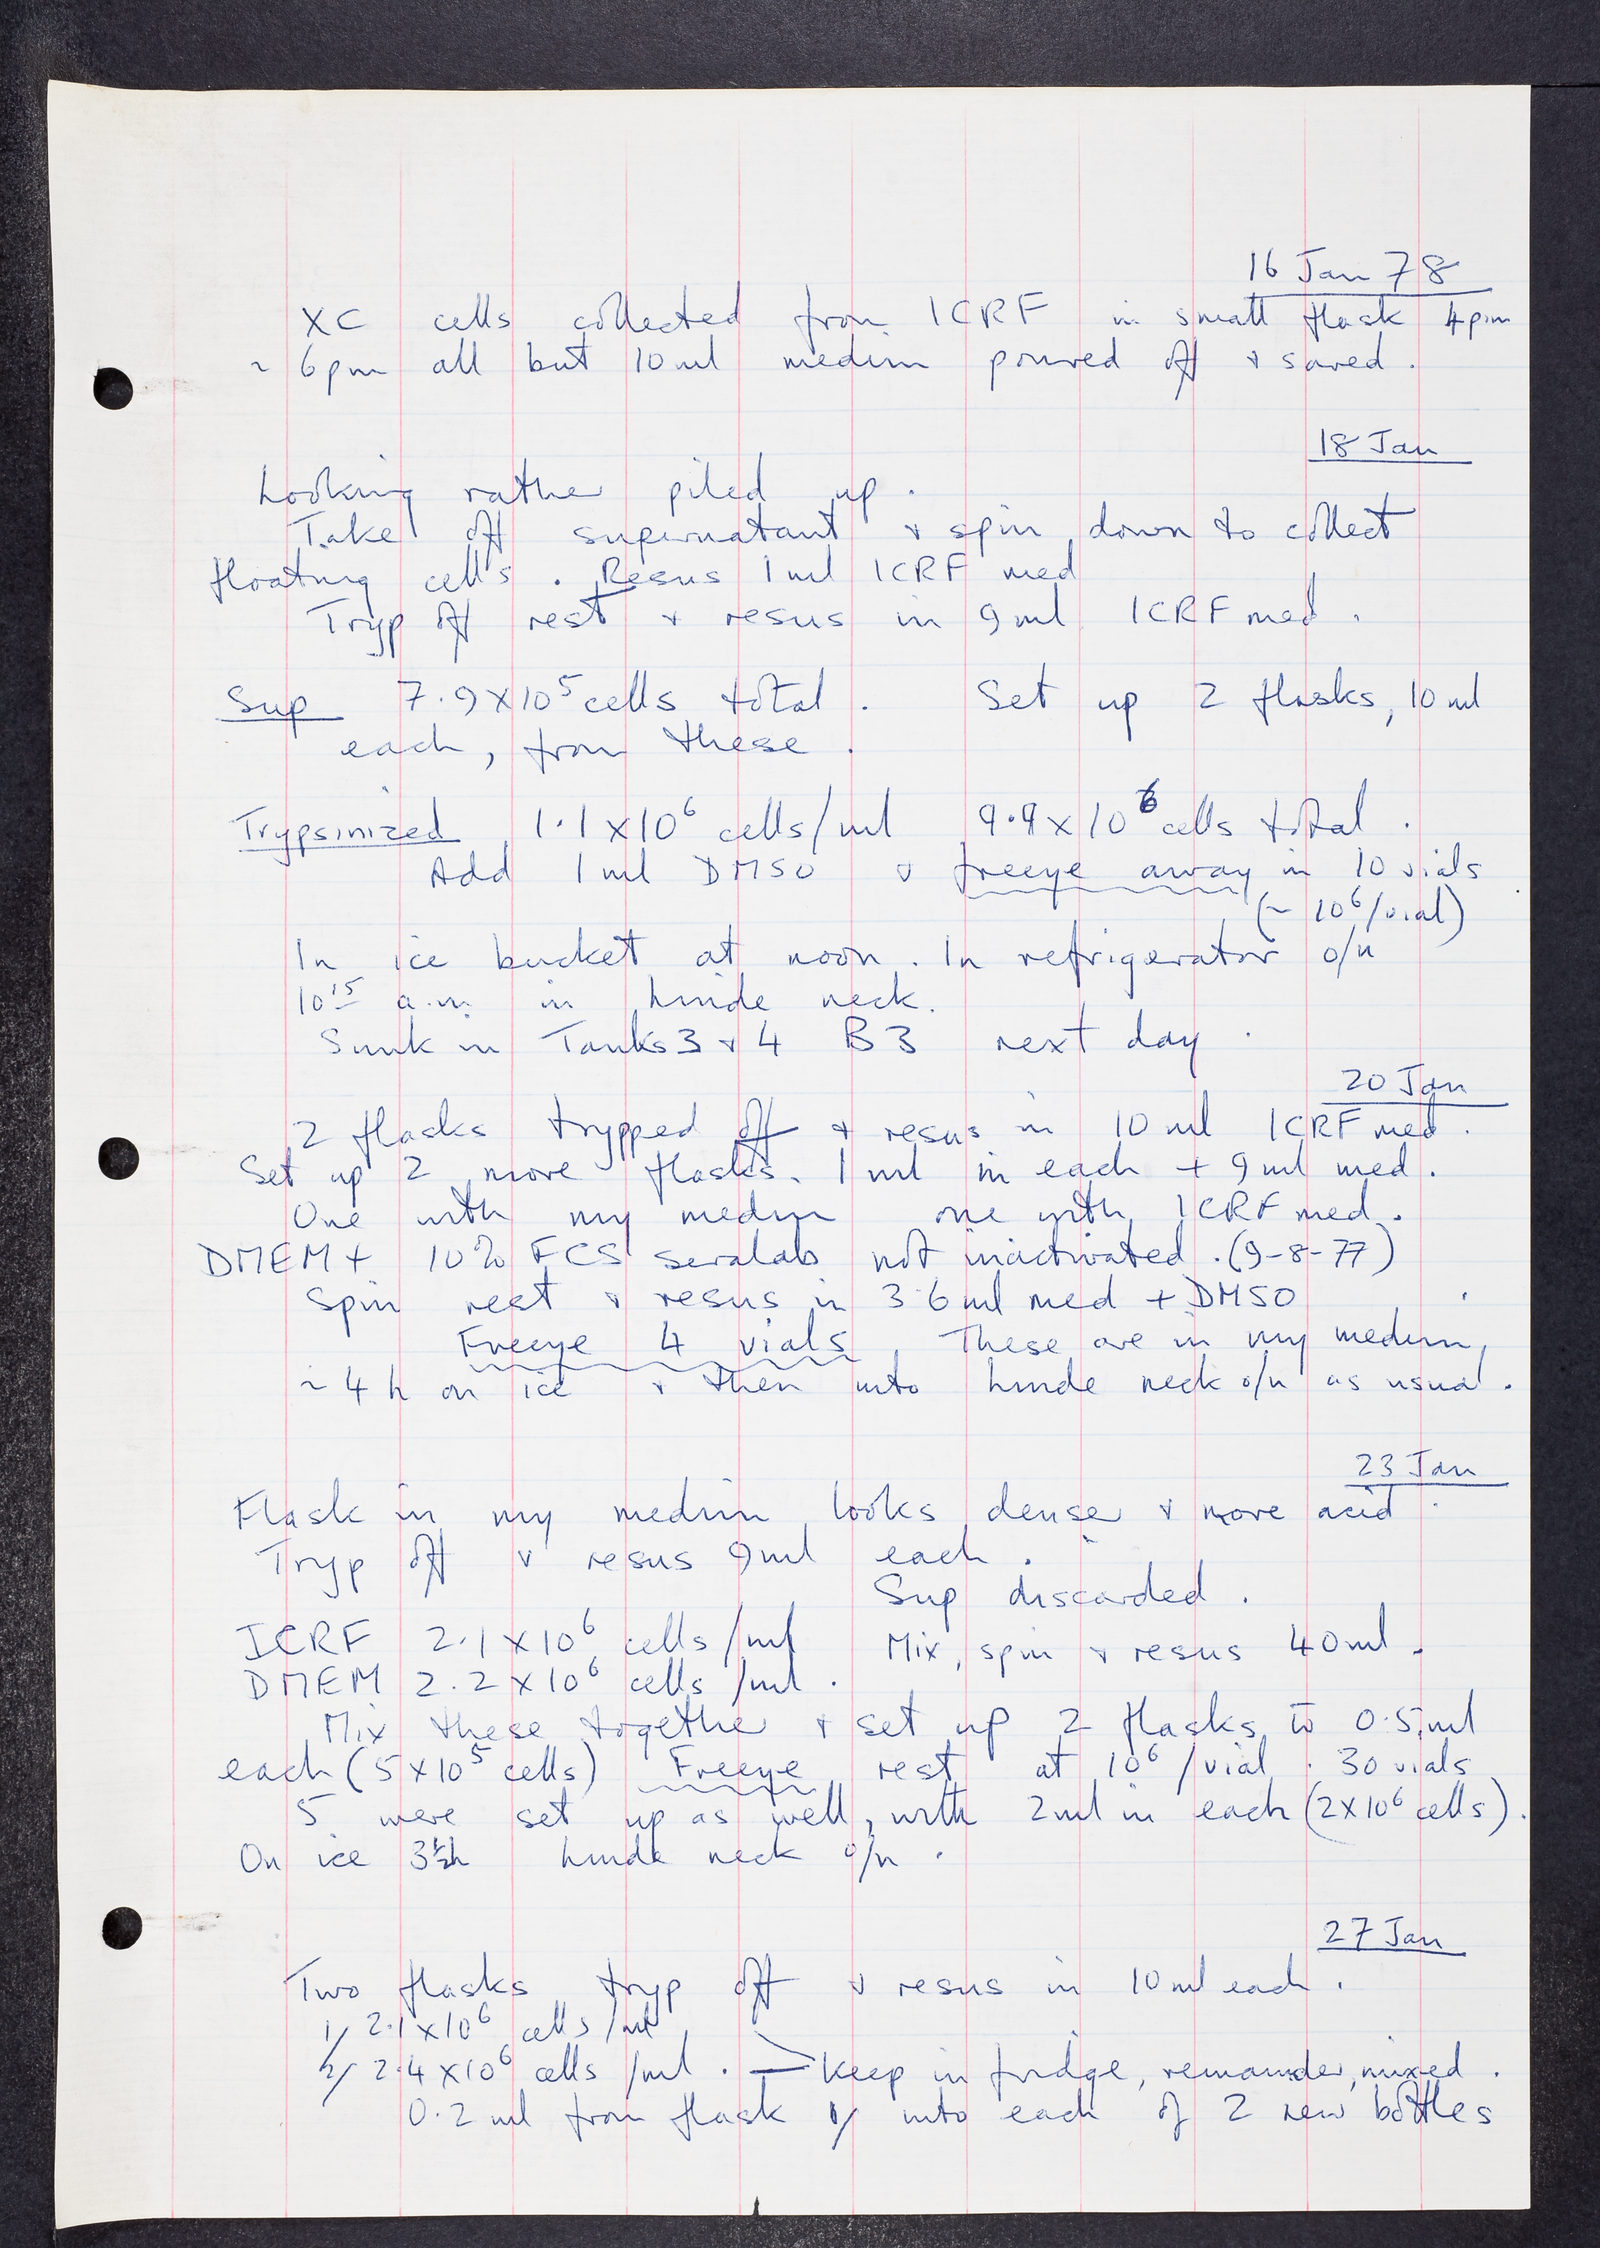 16 Jan 78
XC cells collected from ICRF in small flask 4pm
~ 6pm all but 10ml medium poured off & saved.
18 Jan
Looking rather piled up.
Take off supernatant & spin down to collect
floating cells. Resus 1ml ICRF med
Tryp off rest & resus in 9ml ICRF med.
Sup 7.9 x 10⁵ cells total. Set up 2 flasks, 10 ml
each, from these.
Trypsinized 1.1 x 10⁶ cells/ml 9.9 x 10⁶ cells total.
Add 1ml DMSO & freeze away in 10 vials
(~ 10⁶/vial)
In ice bucket at noon. In refrigerator o/n
10¹⁵ a.m. in linde neck.
Sunk in Tanks 3 & 4 B3 next day.
20 Jan
2 flasks trypped off & resus in 10 ml ICRF med.
Set up 2 more flasks. 1ml in each + 9ml med.
One with my medium one with ICRF med.
DMEM + 10% FCS seralab not inactivated. (9-8-77)
Spin rest & resus in 3.6ml med + DMSO
Freeze 4 vials These are in my medium,
~ 4h on ice & then into linde neck o/n as usual.
23 Jan
Flask in my medium looks denser & more acid.
Tryp off & resus 9ml each.
Sup discarded.
ICRF 2.1 x 10⁶ cells/ml Mix, spin & resus 40ml.
DMEM 2.2 x 10⁶ cells/ml.
Mix these together & set up 2 flasks 0.5ml
each (5 x 10⁵ cells) Freeze rest at 10⁶/vial. 30 vials
5 were set up as well, with 2ml in each (2 x 10⁶ cells).
On ice 3½h linde neck o/n.
27 Jan
Two flasks tryp off & resus in 10 ml each.
1/ 2.1 x 10⁶ cells/ml
2/ 2.4 x 10⁶ cells/ml. Keep in fridge, remainder, mixed.
0.2 ml from flask 1/ into each of 2 new bottles